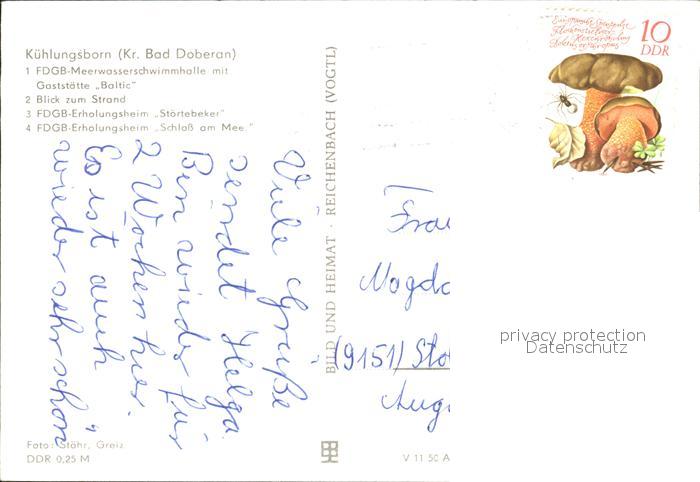 Kühlungsborn (Kr. Bad Doberan)
1 FDGB-Meerwasserschwimmhalle mit
Gaststätte „Baltic"
2 Blick zum Strand
3 FDGB-Erholungsheim „Störtebeker"
4 FDGB-Erholungsheim „Schloß am Mee."
Viele Grüße
sendet Helga.
Bin wieder für
2 Wochen hier.
Es ist auch
wieder sehr schön
Foto: Stöhr, Greiz
DDR 0,25 M
BILD UND HEIMAT · REICHENBACH (VOGTL)
V 11 50 A
10
DDR
Frau
Magda
(9151) Sto
Aug
privacy protection
Datenschutz